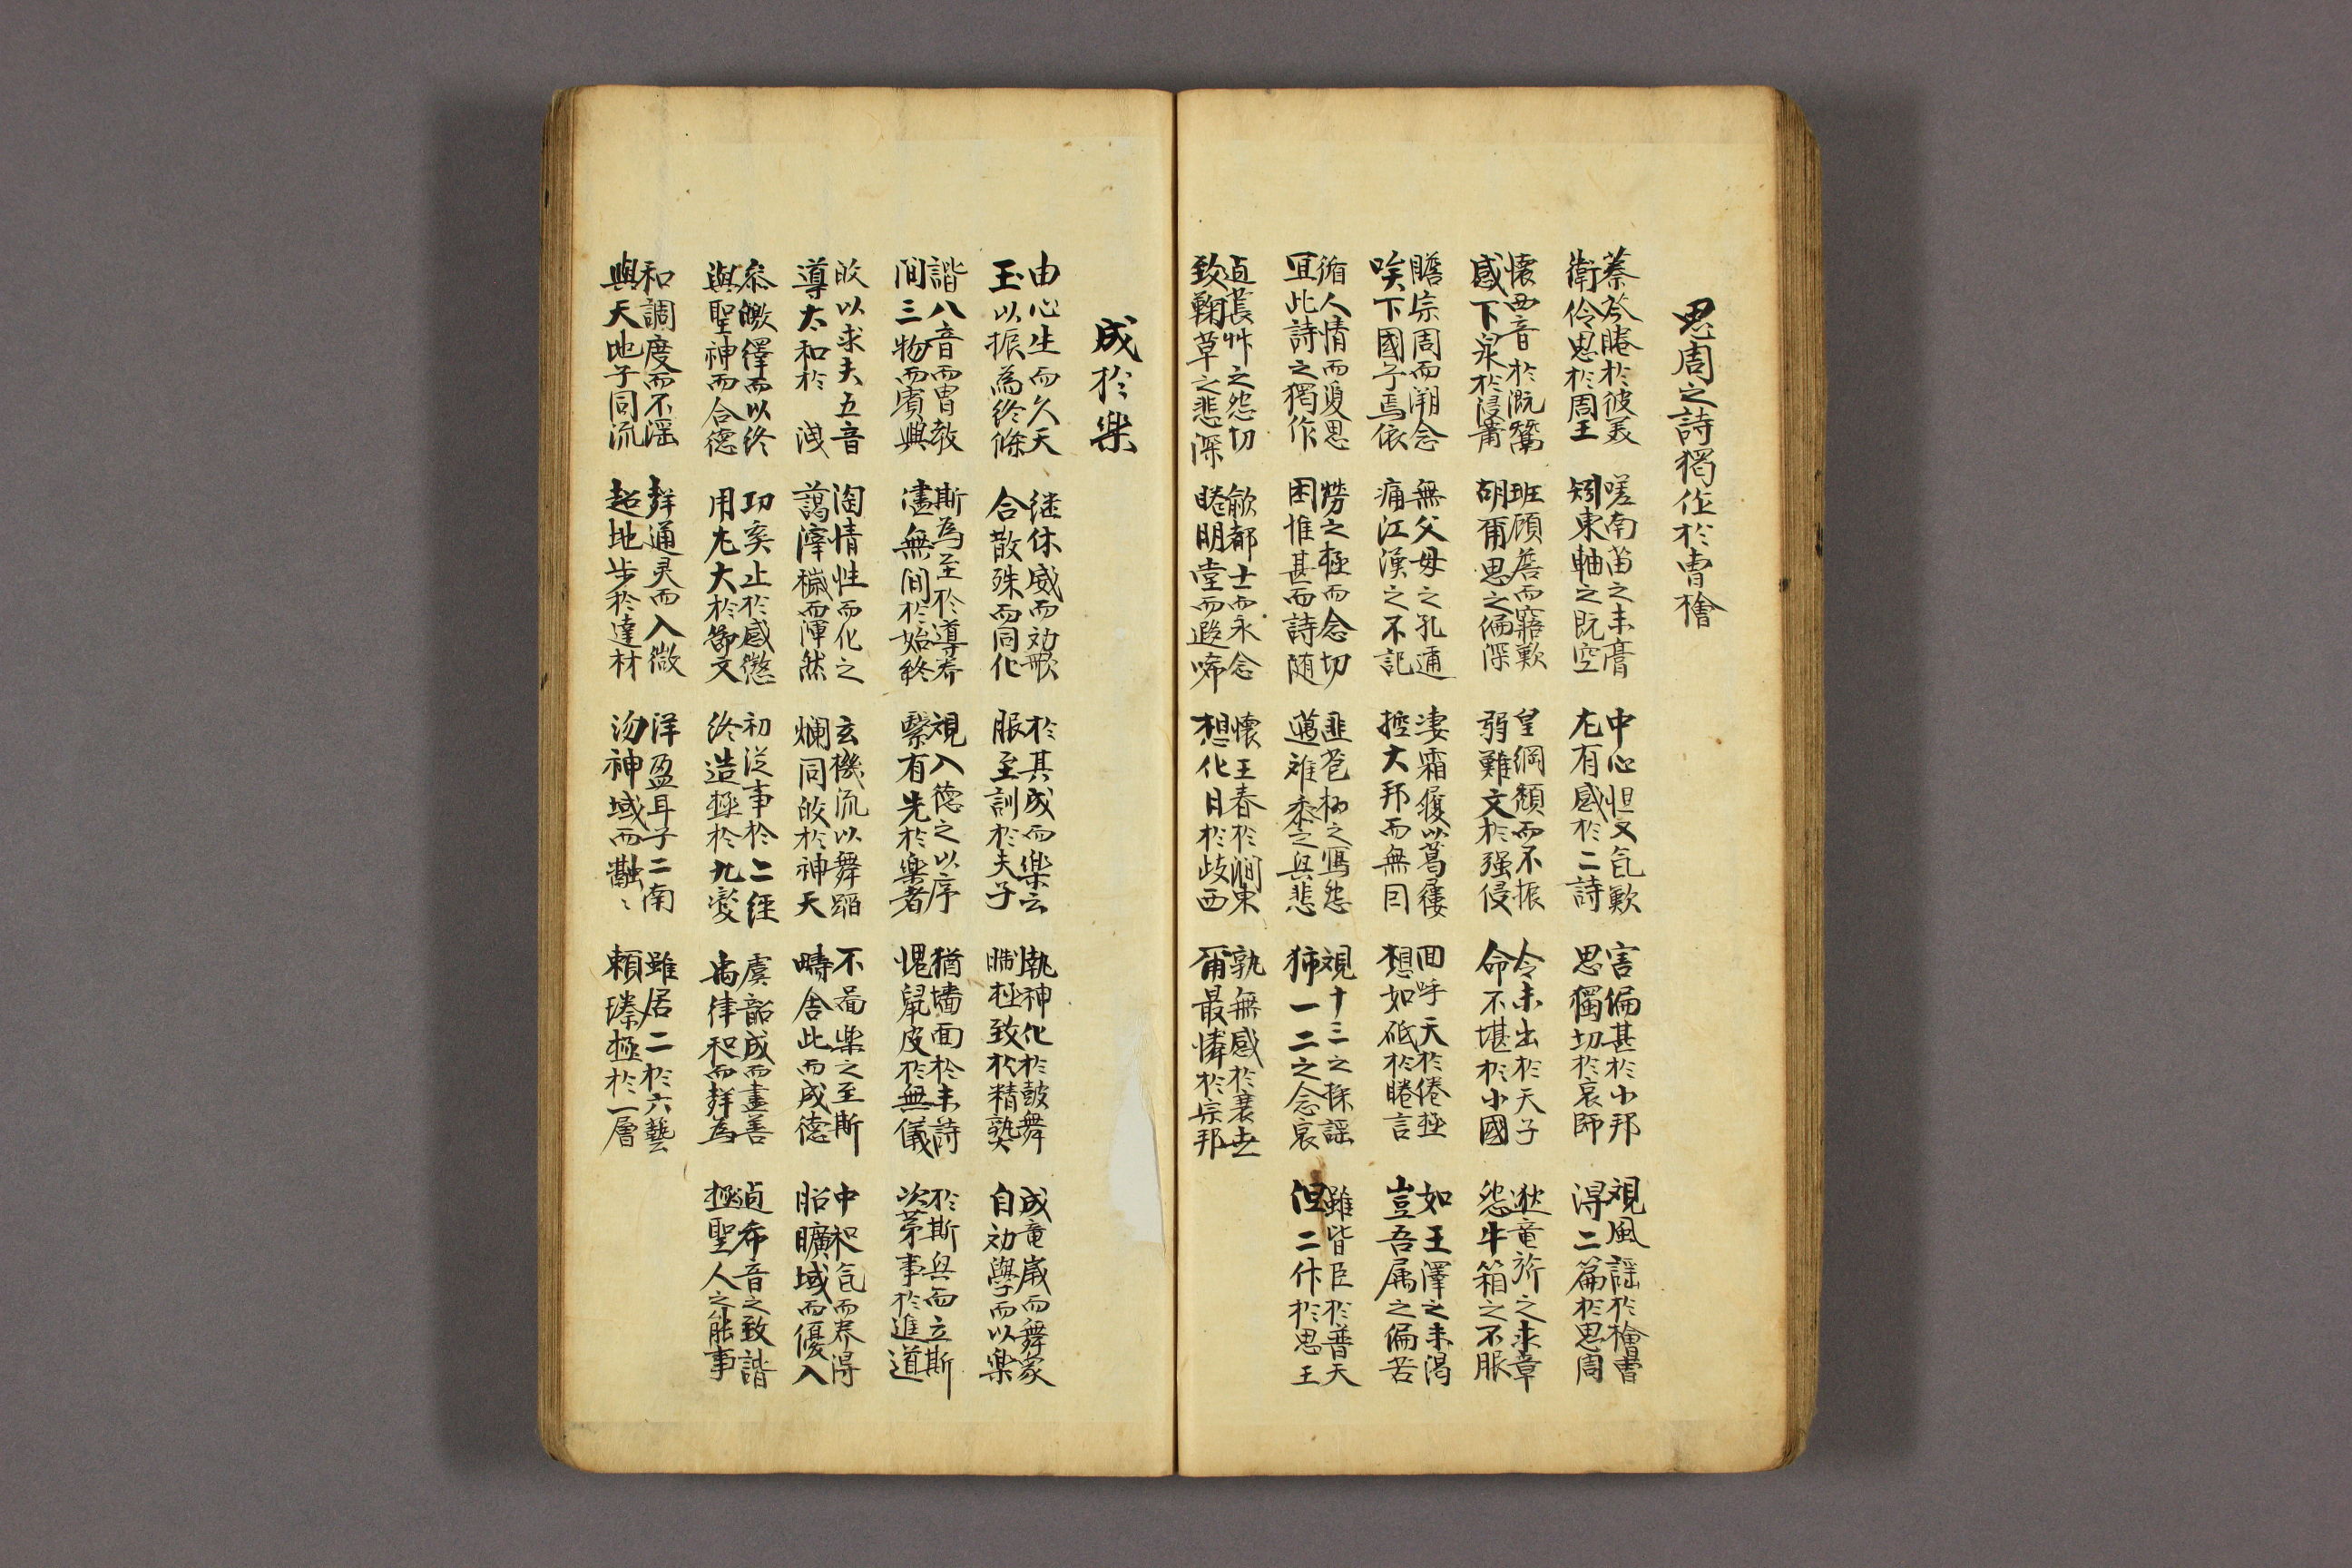 思周之詩獨作於曹檜
蓁苓睠於彼美
衛伶思於周王
嗟南苗之未膏
矧東軸之既空
中心怛又乞歎
尤有感於二詩
害偏甚於小邦
思獨切於哀師
視風謠於檜曹
得二篇於思周
懷西音於溉鬵
感下泉於浸蕭
班顧詹而寤歎
胡爾思之偏深
皇綱頹而不振
弱難支於强侵
令未出於天子
命不堪於小國
狄竜旂之未章
怨牛箱之不服
瞻宗周而溯念
唉下國乎焉依
無父母之孔邇
痛江漢之不記
凄霜履以葛屨
控大邦而無因
回呼天於倦極
想如砥於睠言
如王澤之未渴
豈吾属之偏苦
循人情而爰思
宜此詩之獨作
勞之極而念切
困惟甚而詩随
匪苞栩之寫怨
邁難黍之興悲
視十三之採謠
獨一二之念哀
雖皆臣於普天
但二什於思王
逌萇艸之怨切
致鞠草之悲深
歈都士而永念
睠明堂而遐唏
懷王春於澗東
想化日於歧西
孰無感於衰世
爾最憐於宗邦
成於樂
由心生而久天
玉以振為終條
継休威而効歌
合散殊而同化
於其成而樂云
服至訓於夫子
執神化於皷舞
嘐極致於精熟
成竜歲而舞家
自効學而以樂
諧八音而胄敎
間三物而賓興
斯為至於導养
儘無間於始終
視入德之以序
緊有先於樂者
猶墻面於未詩
愧鼠皮於無儀
於斯興而立斯
次苐事於進道
皎以求夫五音
導太和於洩
淘情性而化之
蕩滓穢而渾然
玄機流以舞蹈
爛同皎於神天
不啚樂之至斯
疇舍此而成德
中和乞而养得
昭曠域而優入
叅皦繹而以终
與聖神而合德
功奚止於感懲
用尤大於節文
初泛事於二經
终造極於九变
虞韶成而盡善
禹律和而聲為
逌希音之致諧
極聖人之能事
和調度而不滛
與天地乎同流
聲通灵而入微
超地步於達材
洋盈耳乎二南
沕神域而融〻
雖居二於六藝
賴臻極於一層